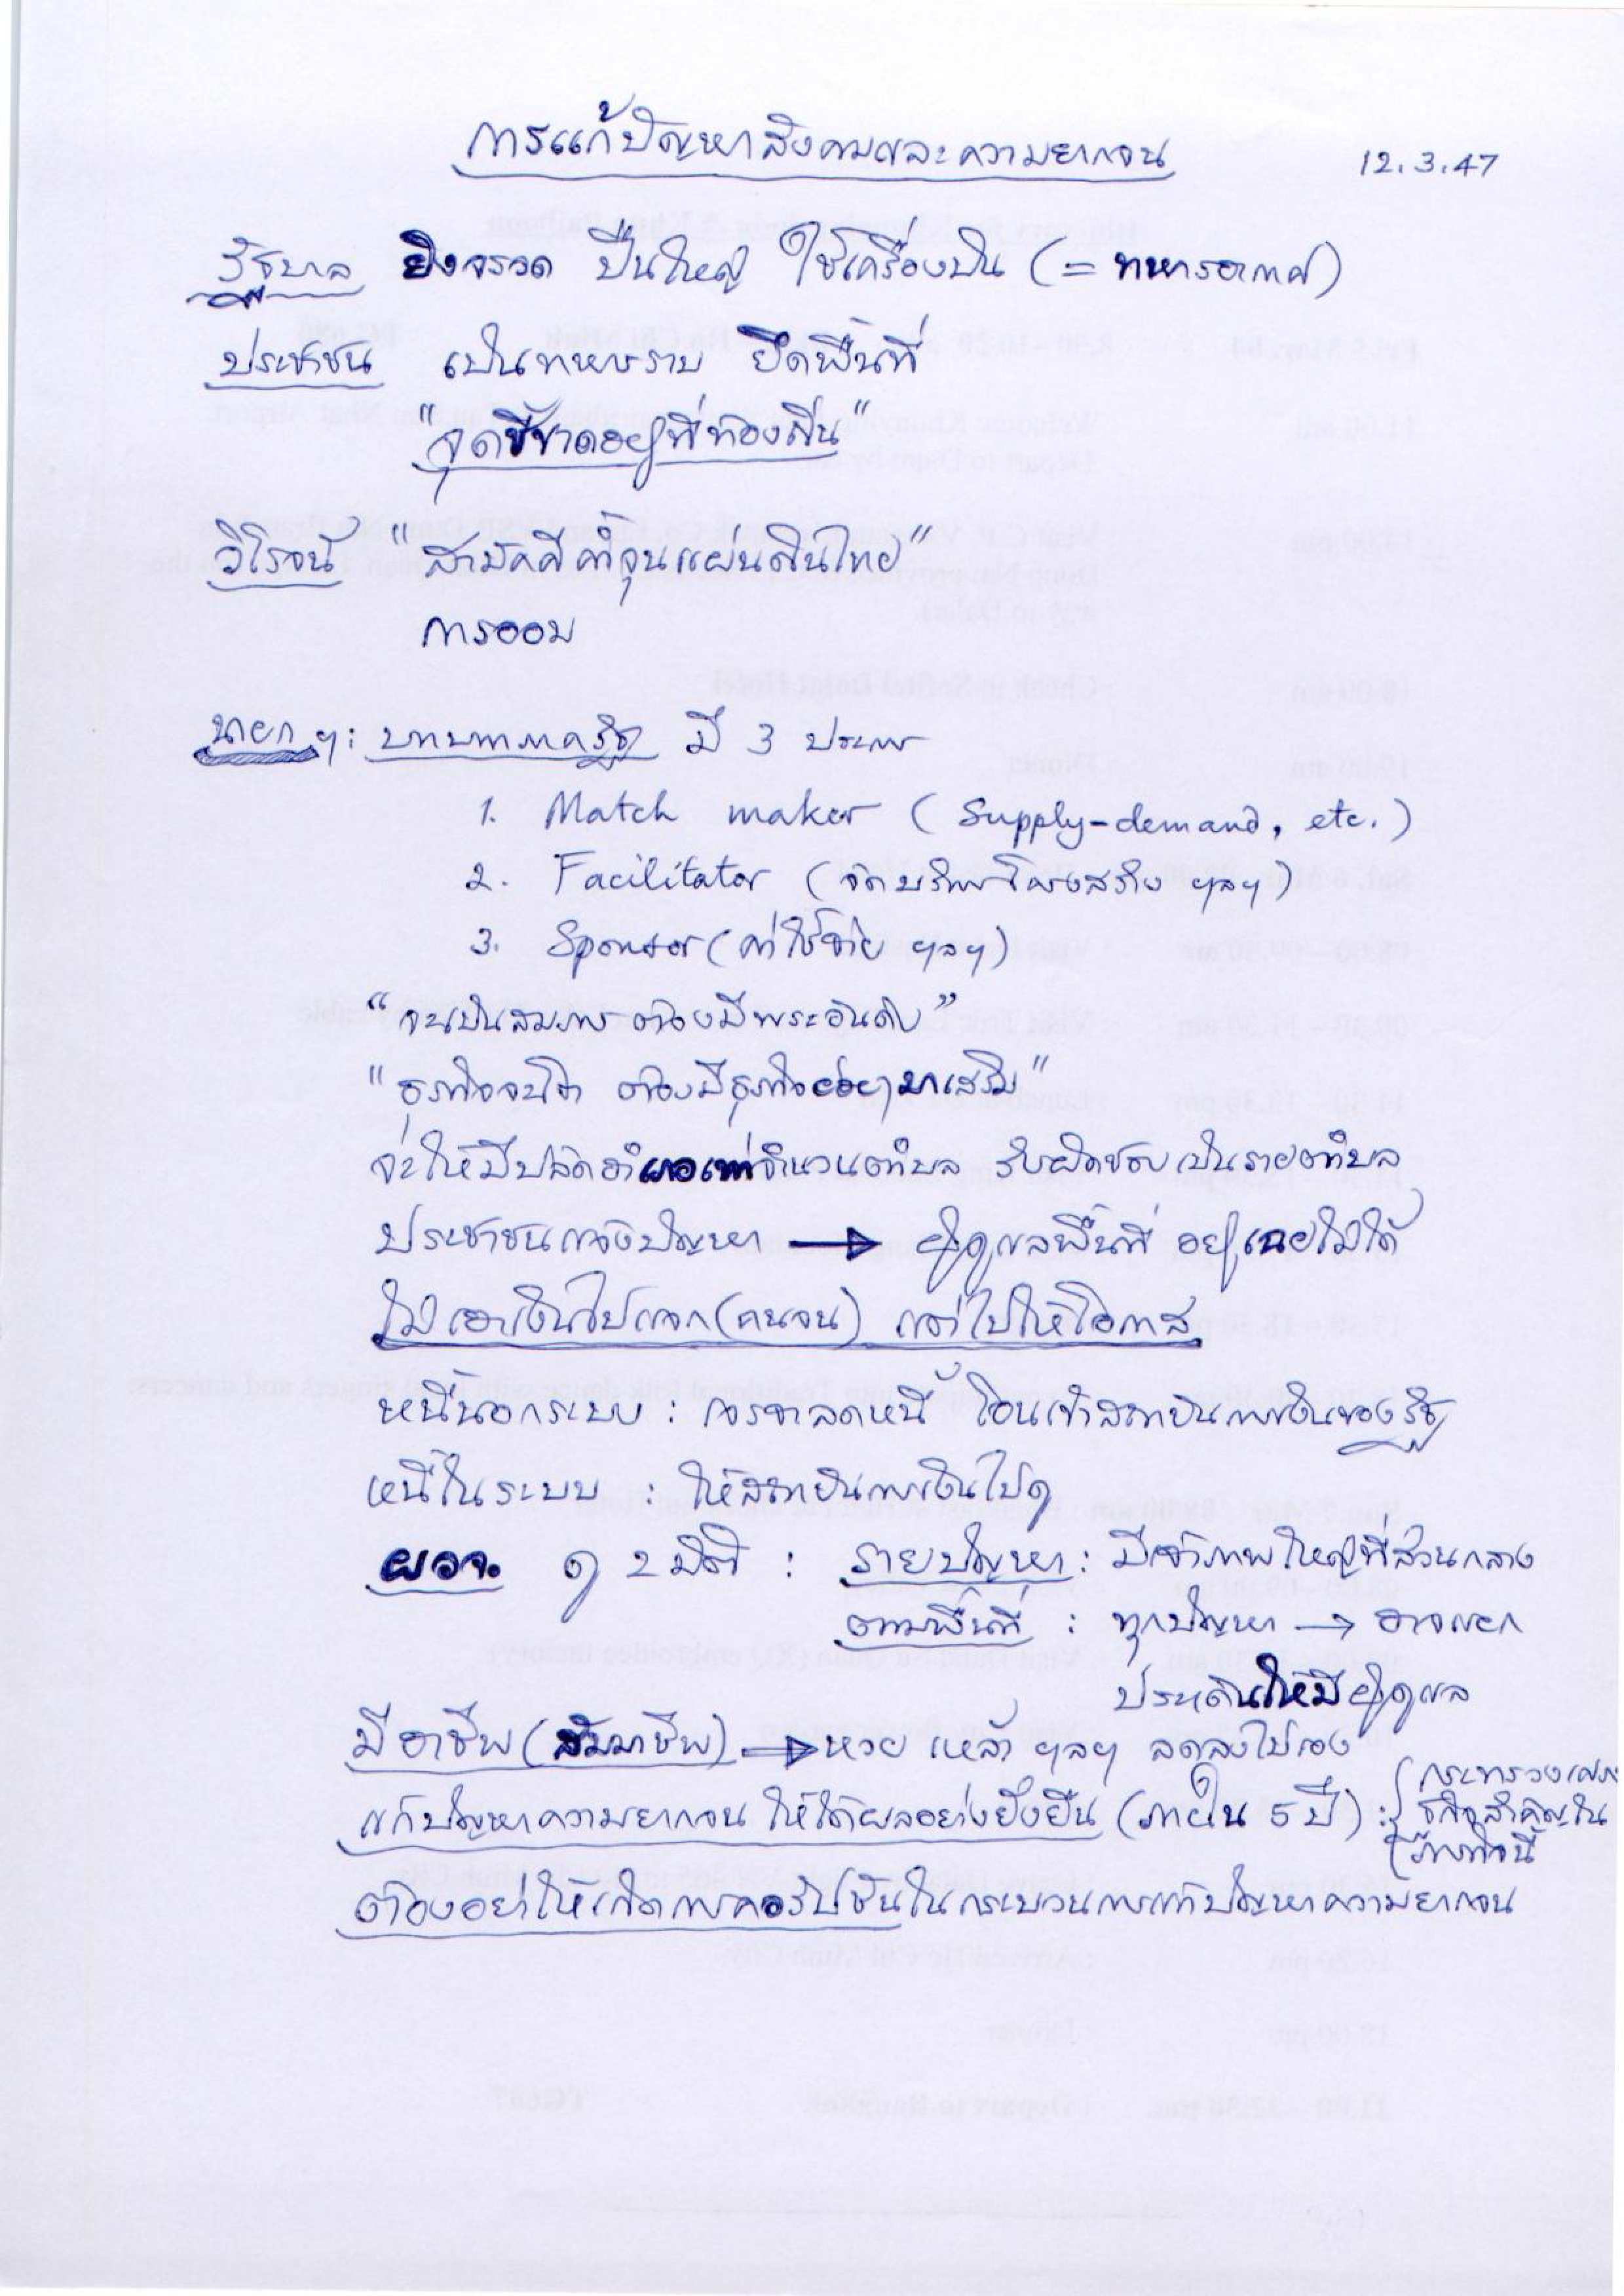 การแก้ปัญหาสังคมและความยากจน
12.3.47
รัฐบาล ยิงจรวด ปืนใหญ่ ใช้เครื่องบิน (= ทหารอากาศ)
ประชาชน เป็นทหารราบ ยึดพื้นที่
"จุดชี้ขาดอยู่ที่ท้องถิ่น"
วิโรจน์ "สามัคคีค้ำจุนแผ่นดินไทย"
การออม
นายกฯ: บทบาทภาครัฐ มี 3 ประการ
1. Match maker (Supply-demand, etc.)
2. Facilitator (จัดบริการโครงสร้าง ฯลฯ)
3. Sponsor (ค่าใช้จ่าย ฯลฯ)
"จะเป็นสมภาร ต้องมีพระอันดับ"
"ธุรกิจจะโต ต้องมีธุรกิจย่อยๆมาเสริม"
จะให้มีปลัดอำเภอเท่าจำนวนตำบล รับผิดชอบเป็นรายตำบล
ประชาชนแจ้งปัญหา → ผู้ดูแลพื้นที่ อยู่เฉยไม่ได้
ไม่เอาเงินไปแจก (คนจน) แต่ไปให้โอกาส
หนี้นอกระบบ : เจรจาลดหนี้ โอนเข้าสถาบันการเงินของรัฐ
หนี้ในระบบ : ให้สถาบันการเงินไปดู
ผวจ. ดู 2 มิติ : รายปัญหา : มีเจ้าภาพใหญ่ที่ส่วนกลาง
ตามพื้นที่ : ทุกปัญหา → อาจแยก
ประเด็นให้มีผู้ดูแล
มีอาชีพ (สัมมาชีพ) → หวย เหล้า ฯลฯ ลดลงไปเอง
แก้ปัญหาความยากจน ให้ได้ผลอย่างยั่งยืน (ภายใน 5 ปี) :
กระทรวง
สำคัญใน
ภารกิจนี้
ต้องอย่าให้เกิดการคอรัปชันในกระบวนการแก้ปัญหาความยากจน